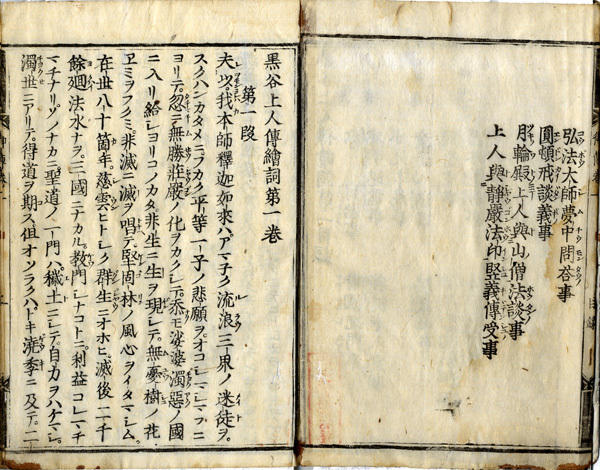 弘法大師夢中問答事
圓頓戒談義事
月輪殿上人與山僧法談事
上人與靜嚴法印竪義傳受事
黑谷上人傳繪詞第一卷
第一段
夫以我本師釋迦如來ハアマネク流浪三界ノ迷徒ヲ
スクハンカタメニフカク平等一子ノ悲願ヲオコシマシマスニ
ヨリテ忽ニ無勝莊嚴ノ化ヲカクシテ忝モ娑婆濁惡ノ國
ニ入リ給シヨリコノカタ非生ニ生ヲ現シテ無憂樹ノ花
ヱミヲフクミ非滅ニ滅ヲ唱テ堅固林ノ風心ヲイタマシム
在世八十箇年慈雲ヒトシク群生ニオホヒ滅後二千
餘廻法水ナヲ三國ニナカル教門シナコトニシテ利益コレマチ
マチナリソノナカニ聖道ノ一門ハ穢土ニシテ自力ヲハケマシ
濁世ニアリテ得道ヲ期ス但オソラクハトキ澆季ニ及テ二